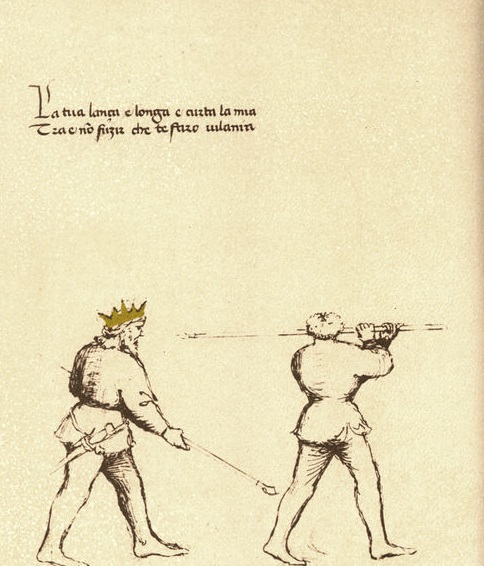 La tua lança e longa e curta la mia
Tra e nō fuzir che te faro uilania